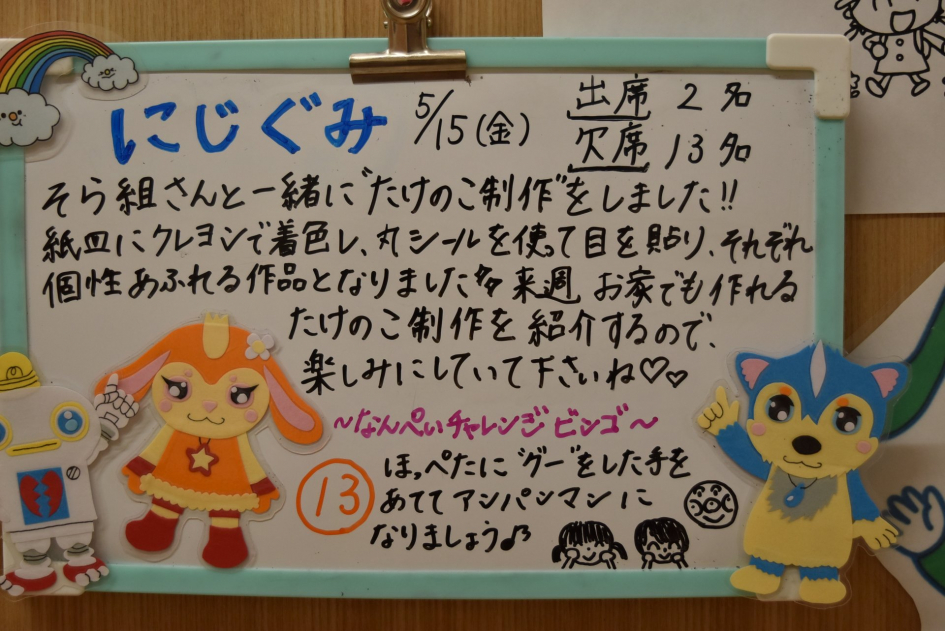 にじぐみ 5/15(金) 出席 2名
欠席 13名
そら組さんと一緒に"たけのこ制作"をしました!!
紙皿にクレヨンで着色し、丸シールを使って目を貼り、それぞれ
個性あふれる作品となりました 来週 お家でも作れる
たけのこ制作を紹介するので、
楽しみにしていて下さいね♡♡
〜なんぺいチャレンジビンゴ〜
⑬ ほっぺたに"グー"をした手を
あててアンパンマンに
なりましょう♪